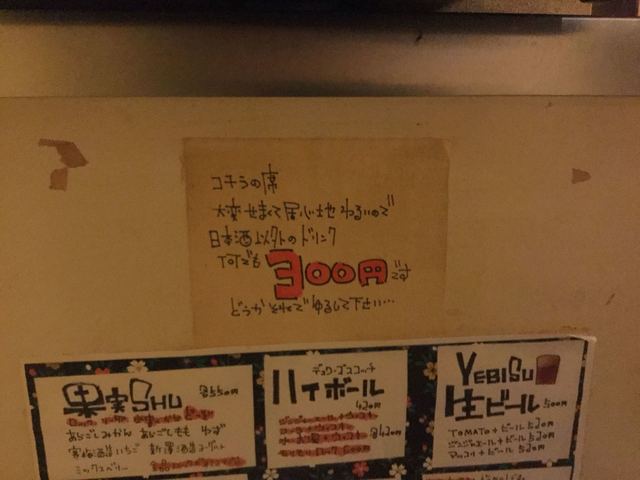 コチラの席
大変せまくて居心地わるいので
日本酒以外のドリンク
何でも300円です
どうかそれでゆるして下さい…
果実SHU 各550円
あらごしみかん あらごしもも ゆず
ミックスベリー
デュワ・ゴスコット
ハイボール
420円
各420円
YEBISU
生ビール 500円
TOMATO+ビール 520円
ジンジャエール+ビール 520円
カシス+ビール 520円